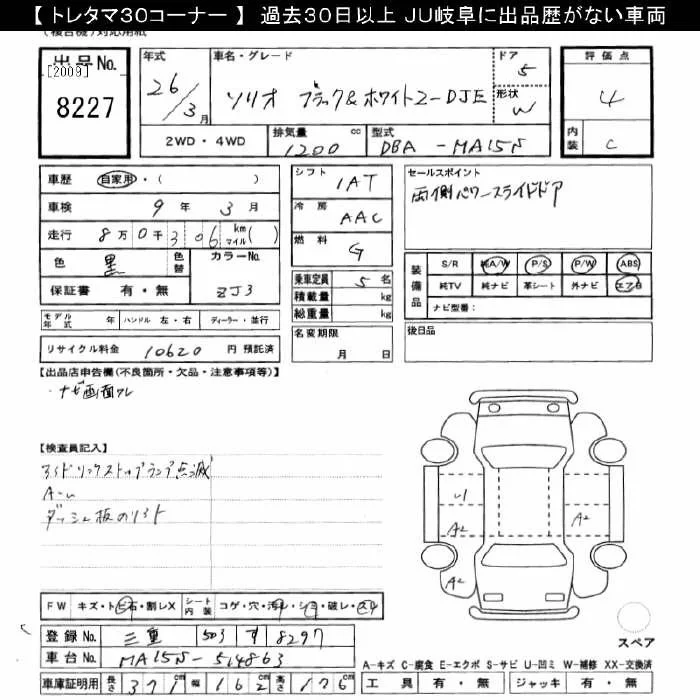 【 トレタマ30コーナー 】 過去30日以上 JU岐阜に出品歴がない車両
出品No.
[2009]
8227
年式
26/3月
車名・グレード
ソリオ ブラック&ホワイト2-DJE
ドア
5
形状
W
評価点
4
内装
C
2WD・4WD
排気量
1200 cc
型式
DBA-MA15S
車歴 自家用・( )
車検 9年 3月
走行 8万0千306 km マイル( )
色 黒 色替
カラーNo.
ZJ3
保証書 有・無
シフト
IAT
冷房
AAC
燃料
G
セールスポイント
両側パワースライドドア
乗車定員 5名
積載量 kg
総重量 kg
装備品
S/R 純A/W P/S P/W ABS
純TV 純ナビ 革シート 外ナビ エアB
ナビ型番:
モデル年式 年 ハンドル 左・右 ディーラー・並行
名変期限
月 日
後日品
リサイクル料金 10620 円 預託済
【出品店申告欄(不良箇所・欠品・注意事項等)】
・ナビ画面ワレ
【検査員記入】
アイドリングストップランプ点滅
ダッシュ板のリフト
U1
A2
A2
A2
FW キズ・トビ石・割レX
シート内装 コゲ・穴・汚レ・シミ・破レ・スレ
登録No. 三重 503 す 8297
車台No. MA15S-514863
スペア
A-キズ C-腐食 E-エクボ S-サビ U-凹ミ W-補修 XX-交換済
車庫証明用 長さ 371 幅 162 高さ 176
工具 有・無 ジャッキ 有・無